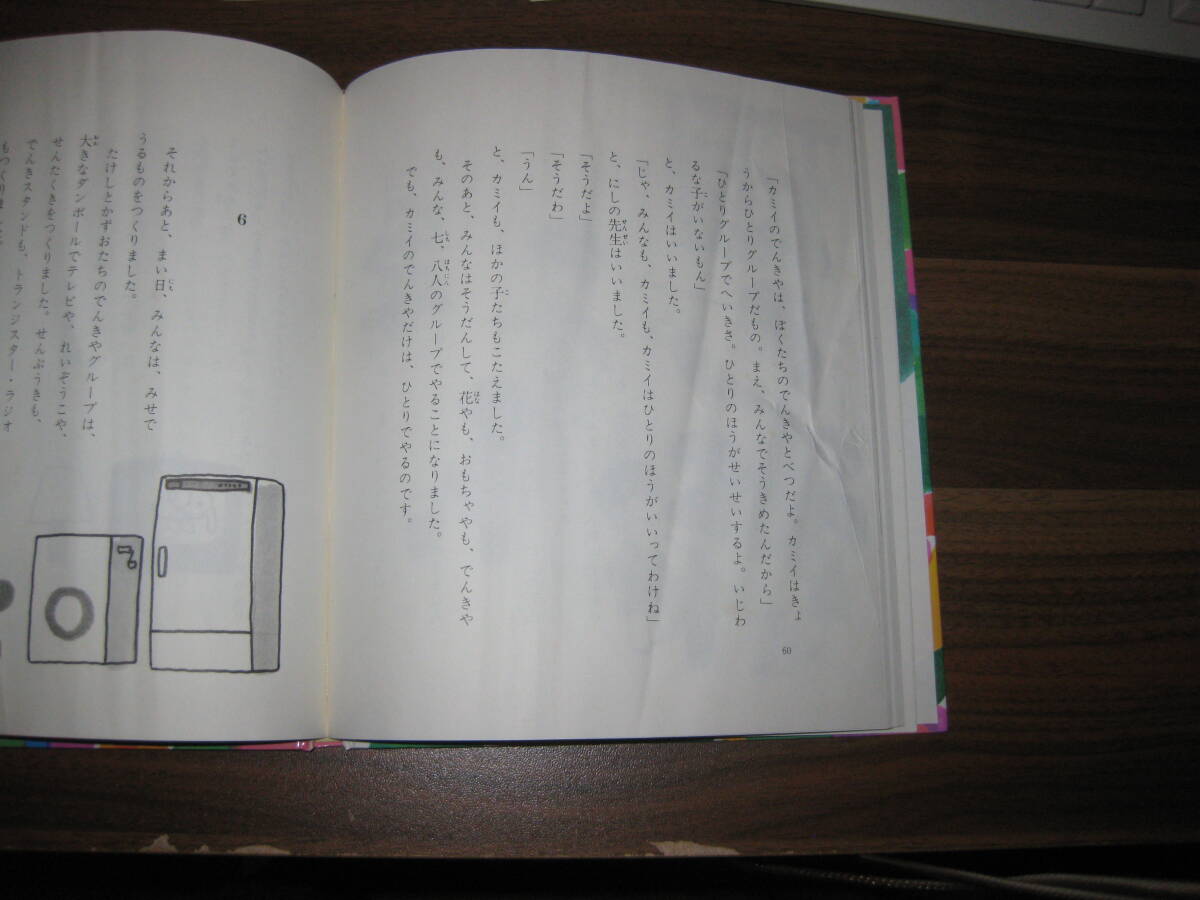 「カミイのでんきやは、ぼくたちのでんきやとべつだよ。カミイはきょ
うからひとりグループだもの。まえ、みんなでそうきめたんだから」
「ひとりグループでへいきさ。ひとりのほうがせいせいするよ。いじわ
るな子がいないもん」
と、カミイはいいました。
「じゃ、みんなも、カミイも、カミイはひとりのほうがいいってわけね」
と、にしの先生はいいました。
「そうだよ」
「そうだわ」
「うん」
と、カミイも、ほかの子たちもこたえました。
そのあと、みんなはそうだんして、花やも、おもちゃやも、でんきや
も、みんな、七、八人のグループでやることになりました。
でも、カミイのでんきやだけは、ひとりでやるのです。
60
6
それからあと、まい日、みんなは、みせで
うるものをつくりました。
たけしとかずおたちのでんきやグループは、
大きなダンボールでテレビや、れいぞうこや、
せんたくきをつくりました。せんぷうきも、
でんきスタンドも、トランジスター・ラジオ
もつくりま